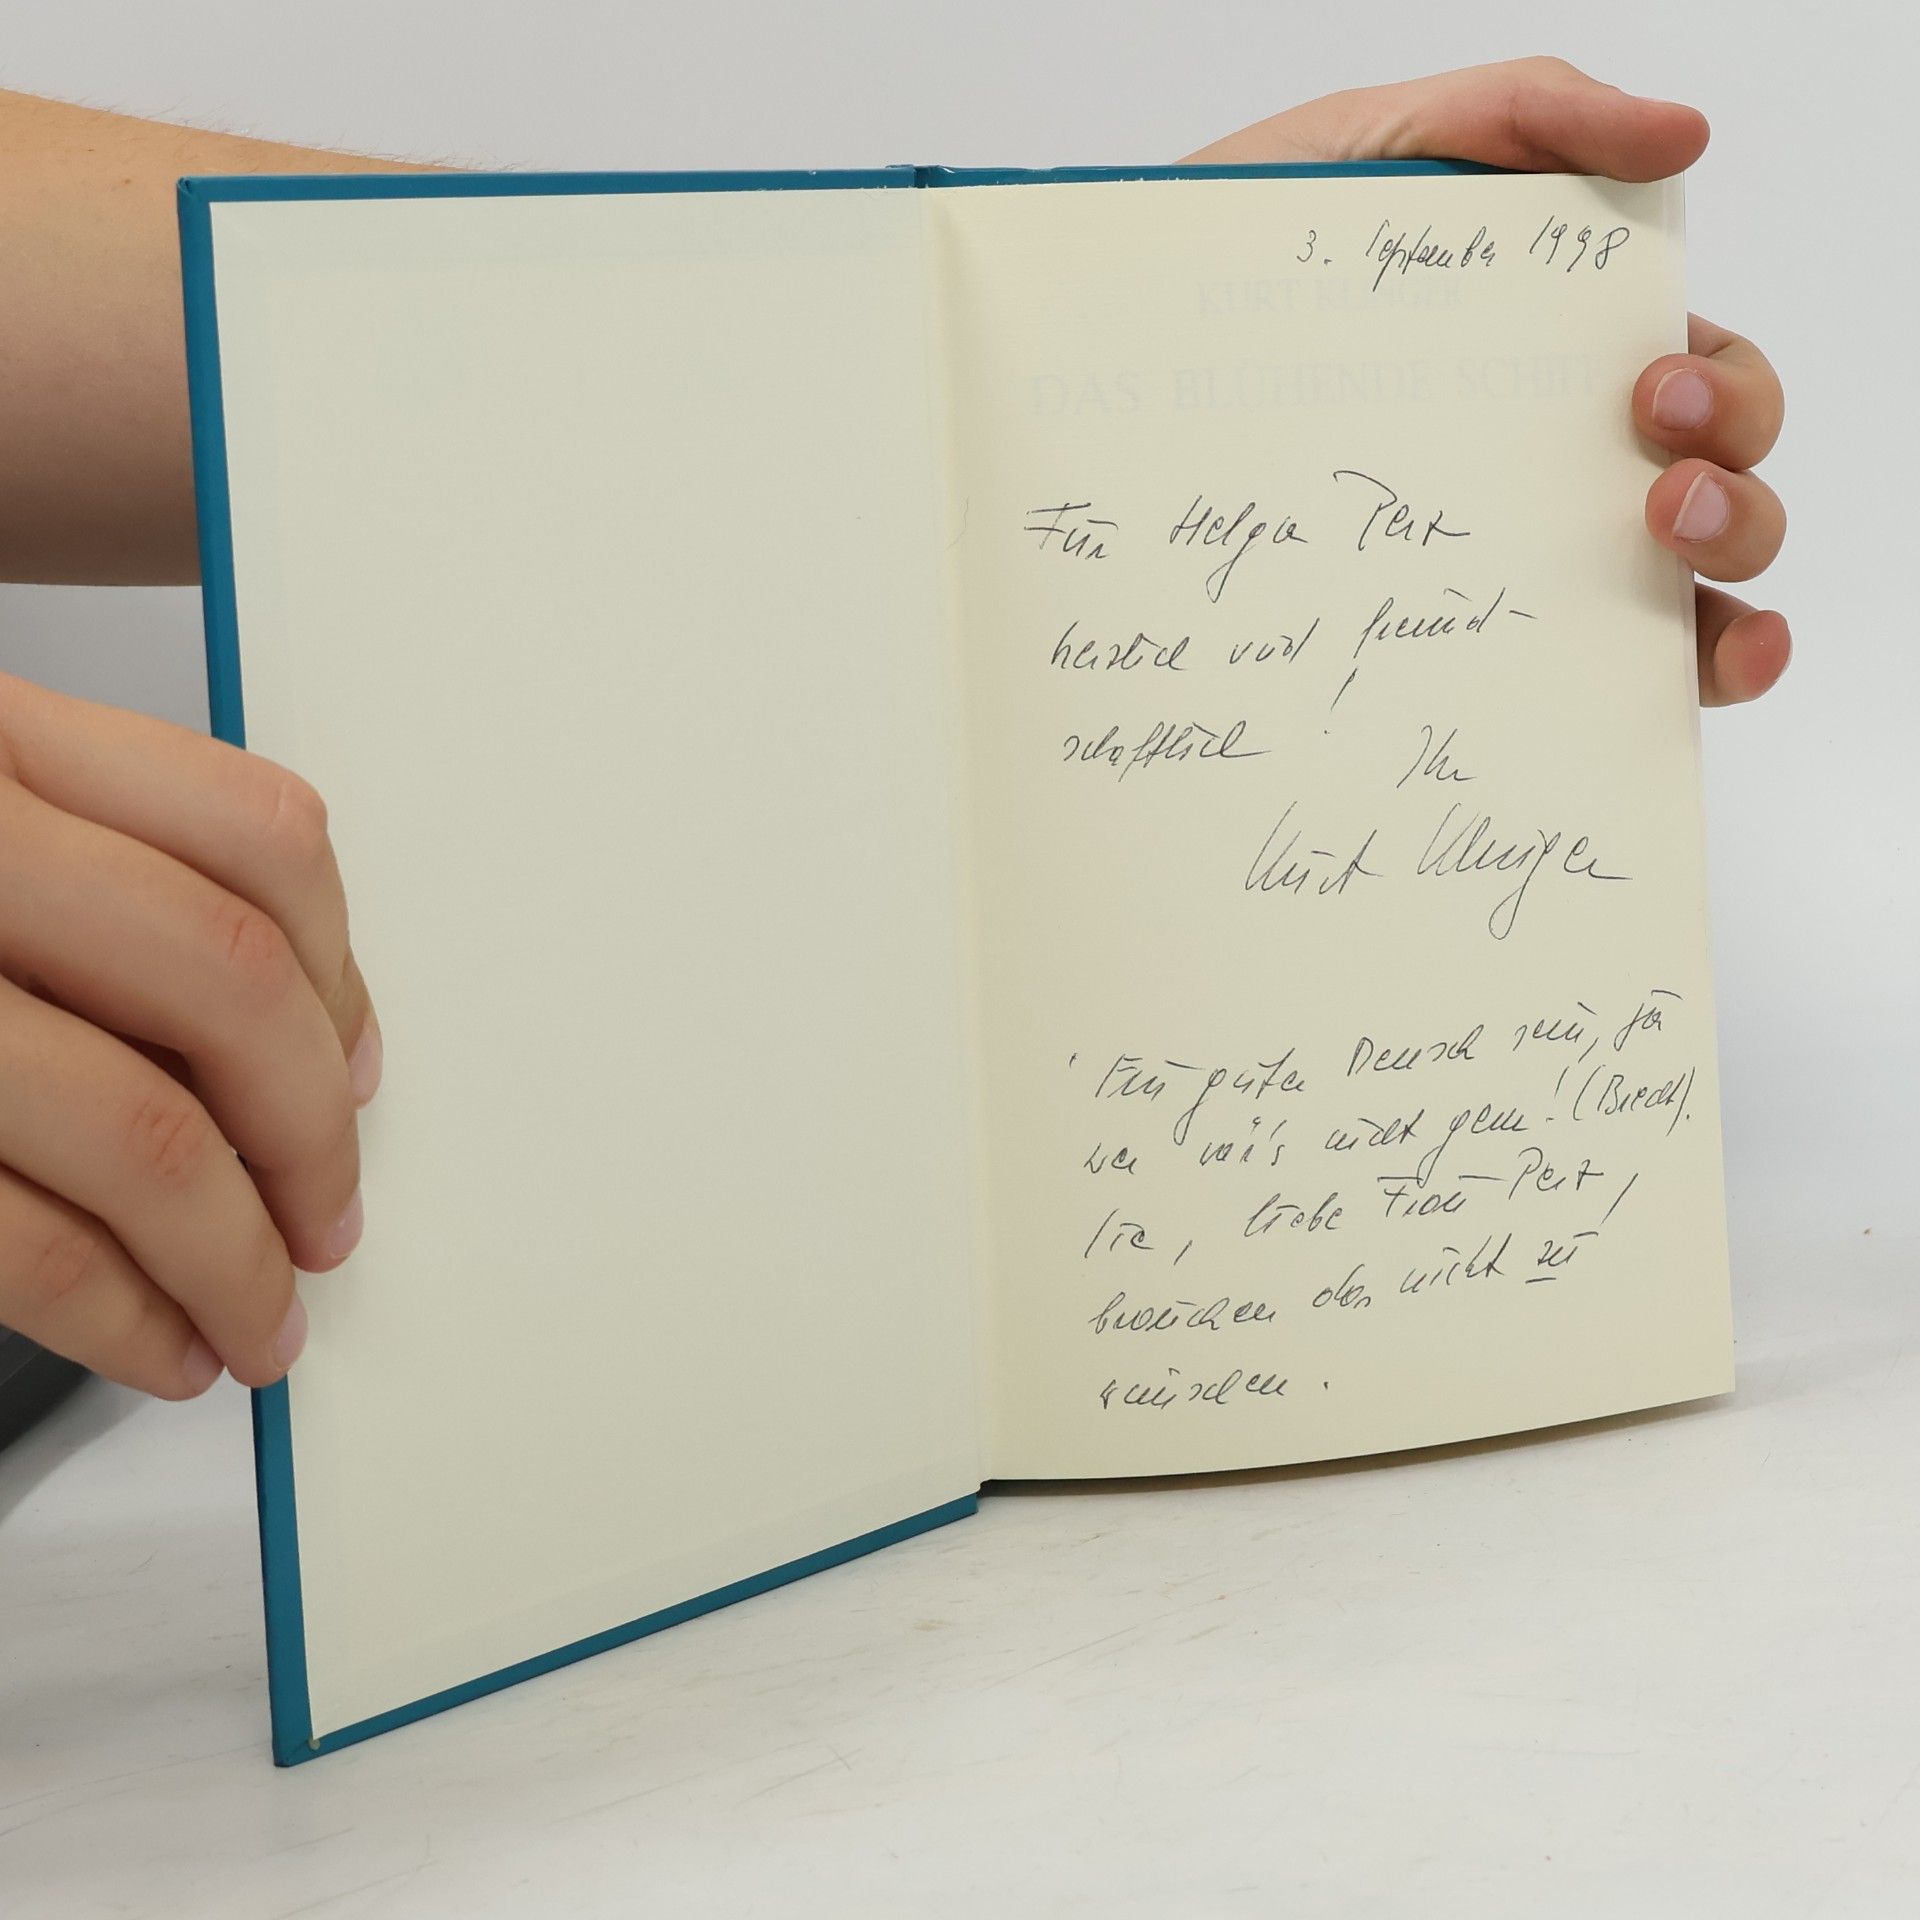 3. September 1998
KURT KLINGER
DAS BLÜHENDE SCHIFF
Für Helga Perz
herzlich und freund-
schaftlich!
Ihr
Kurt Klinger
'Ein guter Mensch sein, ja
wer wär's nicht gern! (Brecht).
Sie, liebe Frau Perz,
brauchen das nicht zu
wünschen.